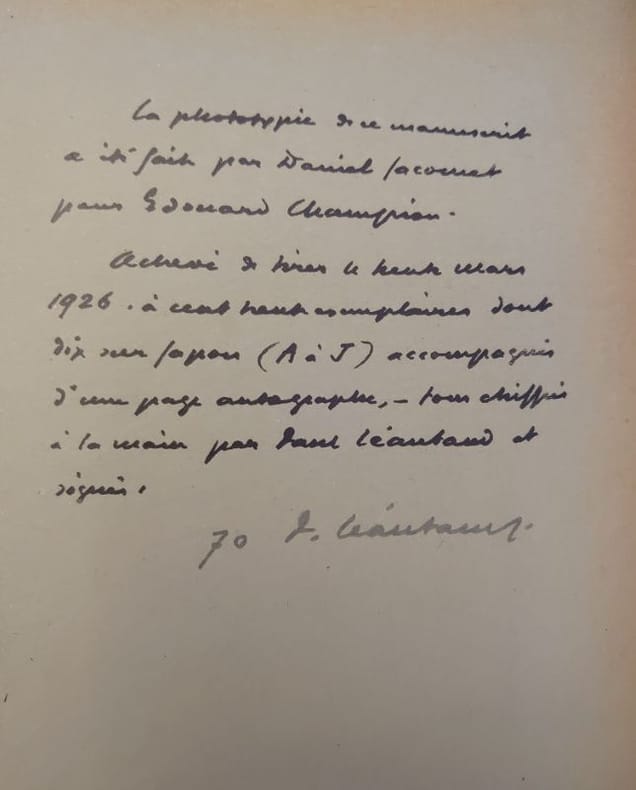 La phototypie de ce manuscrit
a été faite par Daniel Jacomet
pour Edouard Champion.
Achevé de tirer le trente mars
1926. à cent trente exemplaires dont
dix sur Japon (A à J) accompagnés
d'une page autographe, – tous chiffrés
à la main par Paul Léautaud et
signés.
70 P. Léautaud.